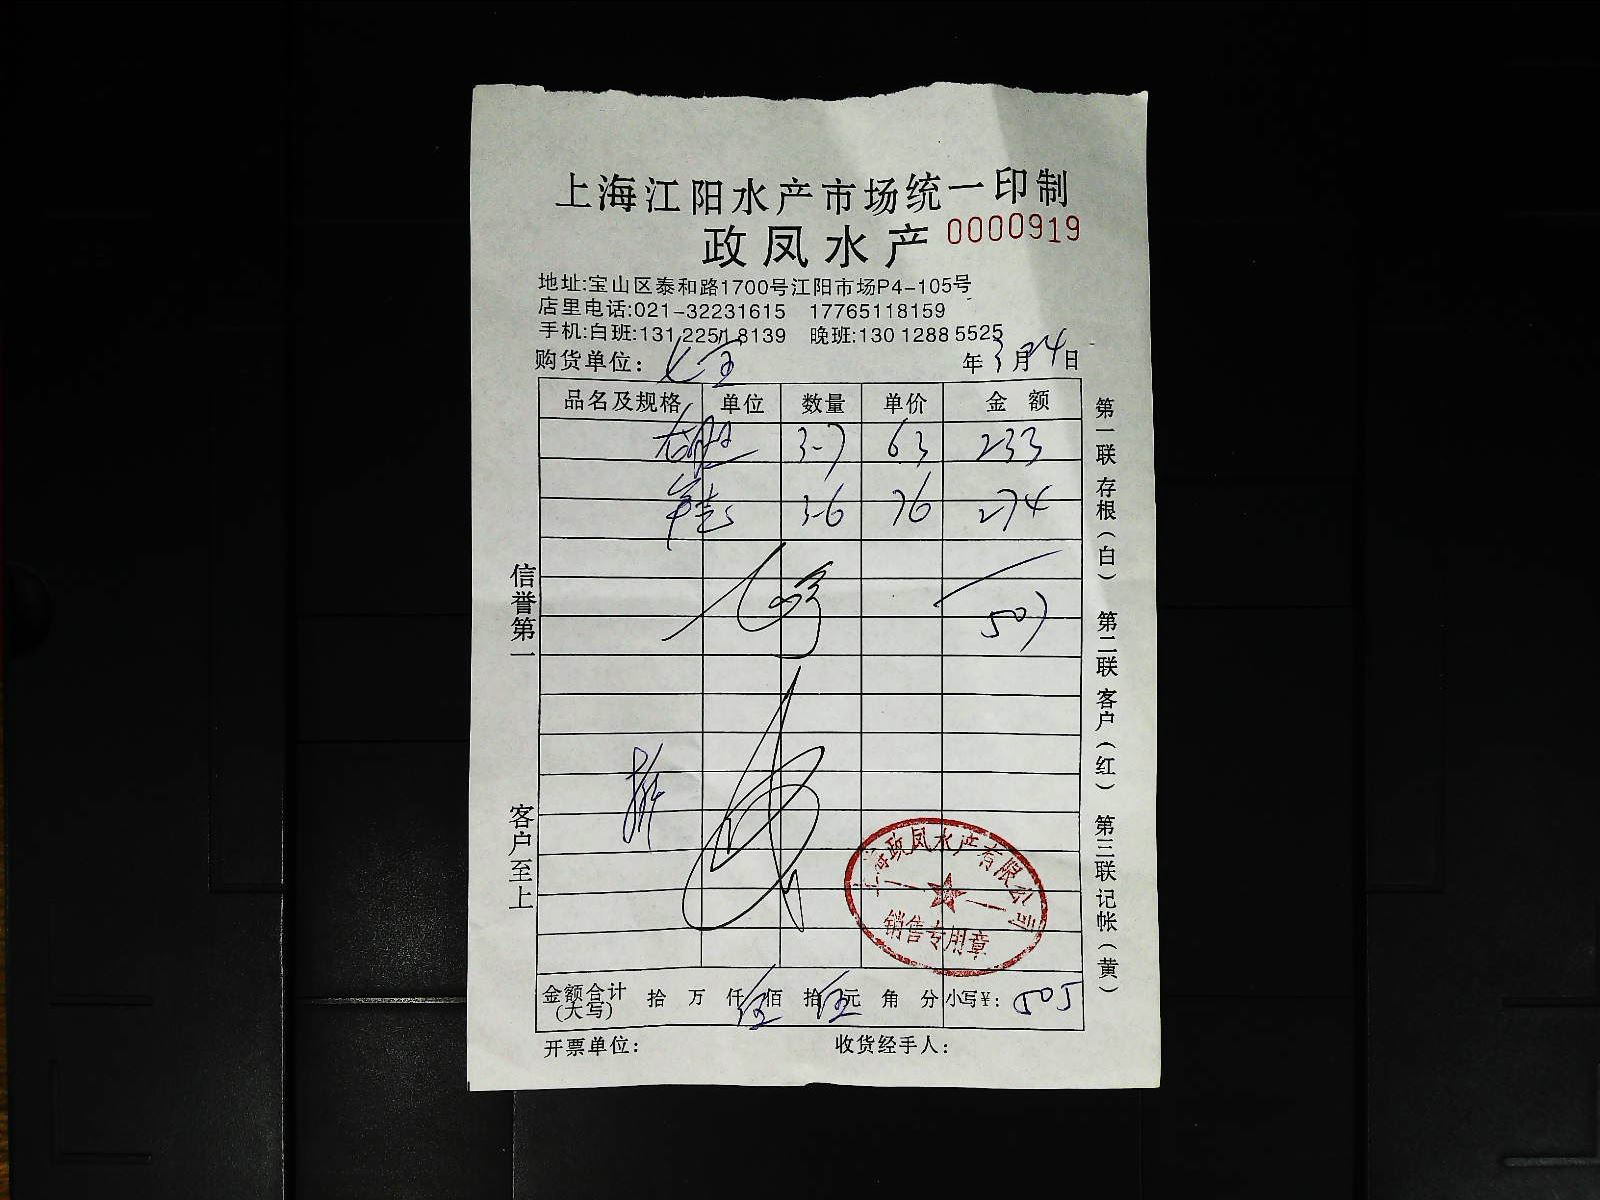 上海江阳水产市场统一印制
政凤水产 0000919
地址:宝山区泰和路1700号江阳市场P4-105号
店里电话:021-32231615 17765118159
手机:白班:131 2251 8139 晚班:130 1288 5525
购货单位: 七宝 年 3 月 24 日
品名及规格 单位 数量 单价 金额
3-7 63 233
3-6 76 274
507
信誉第一 客户至上
第一联存根(白) 第二联客户(红) 第三联记帐(黄)
上海政凤水产有限公司
销售专用章
金额合计(大写) 拾 万 仟 伍 佰 拾 伍 元 角 分 小写¥: 505
开票单位: 收货经手人: